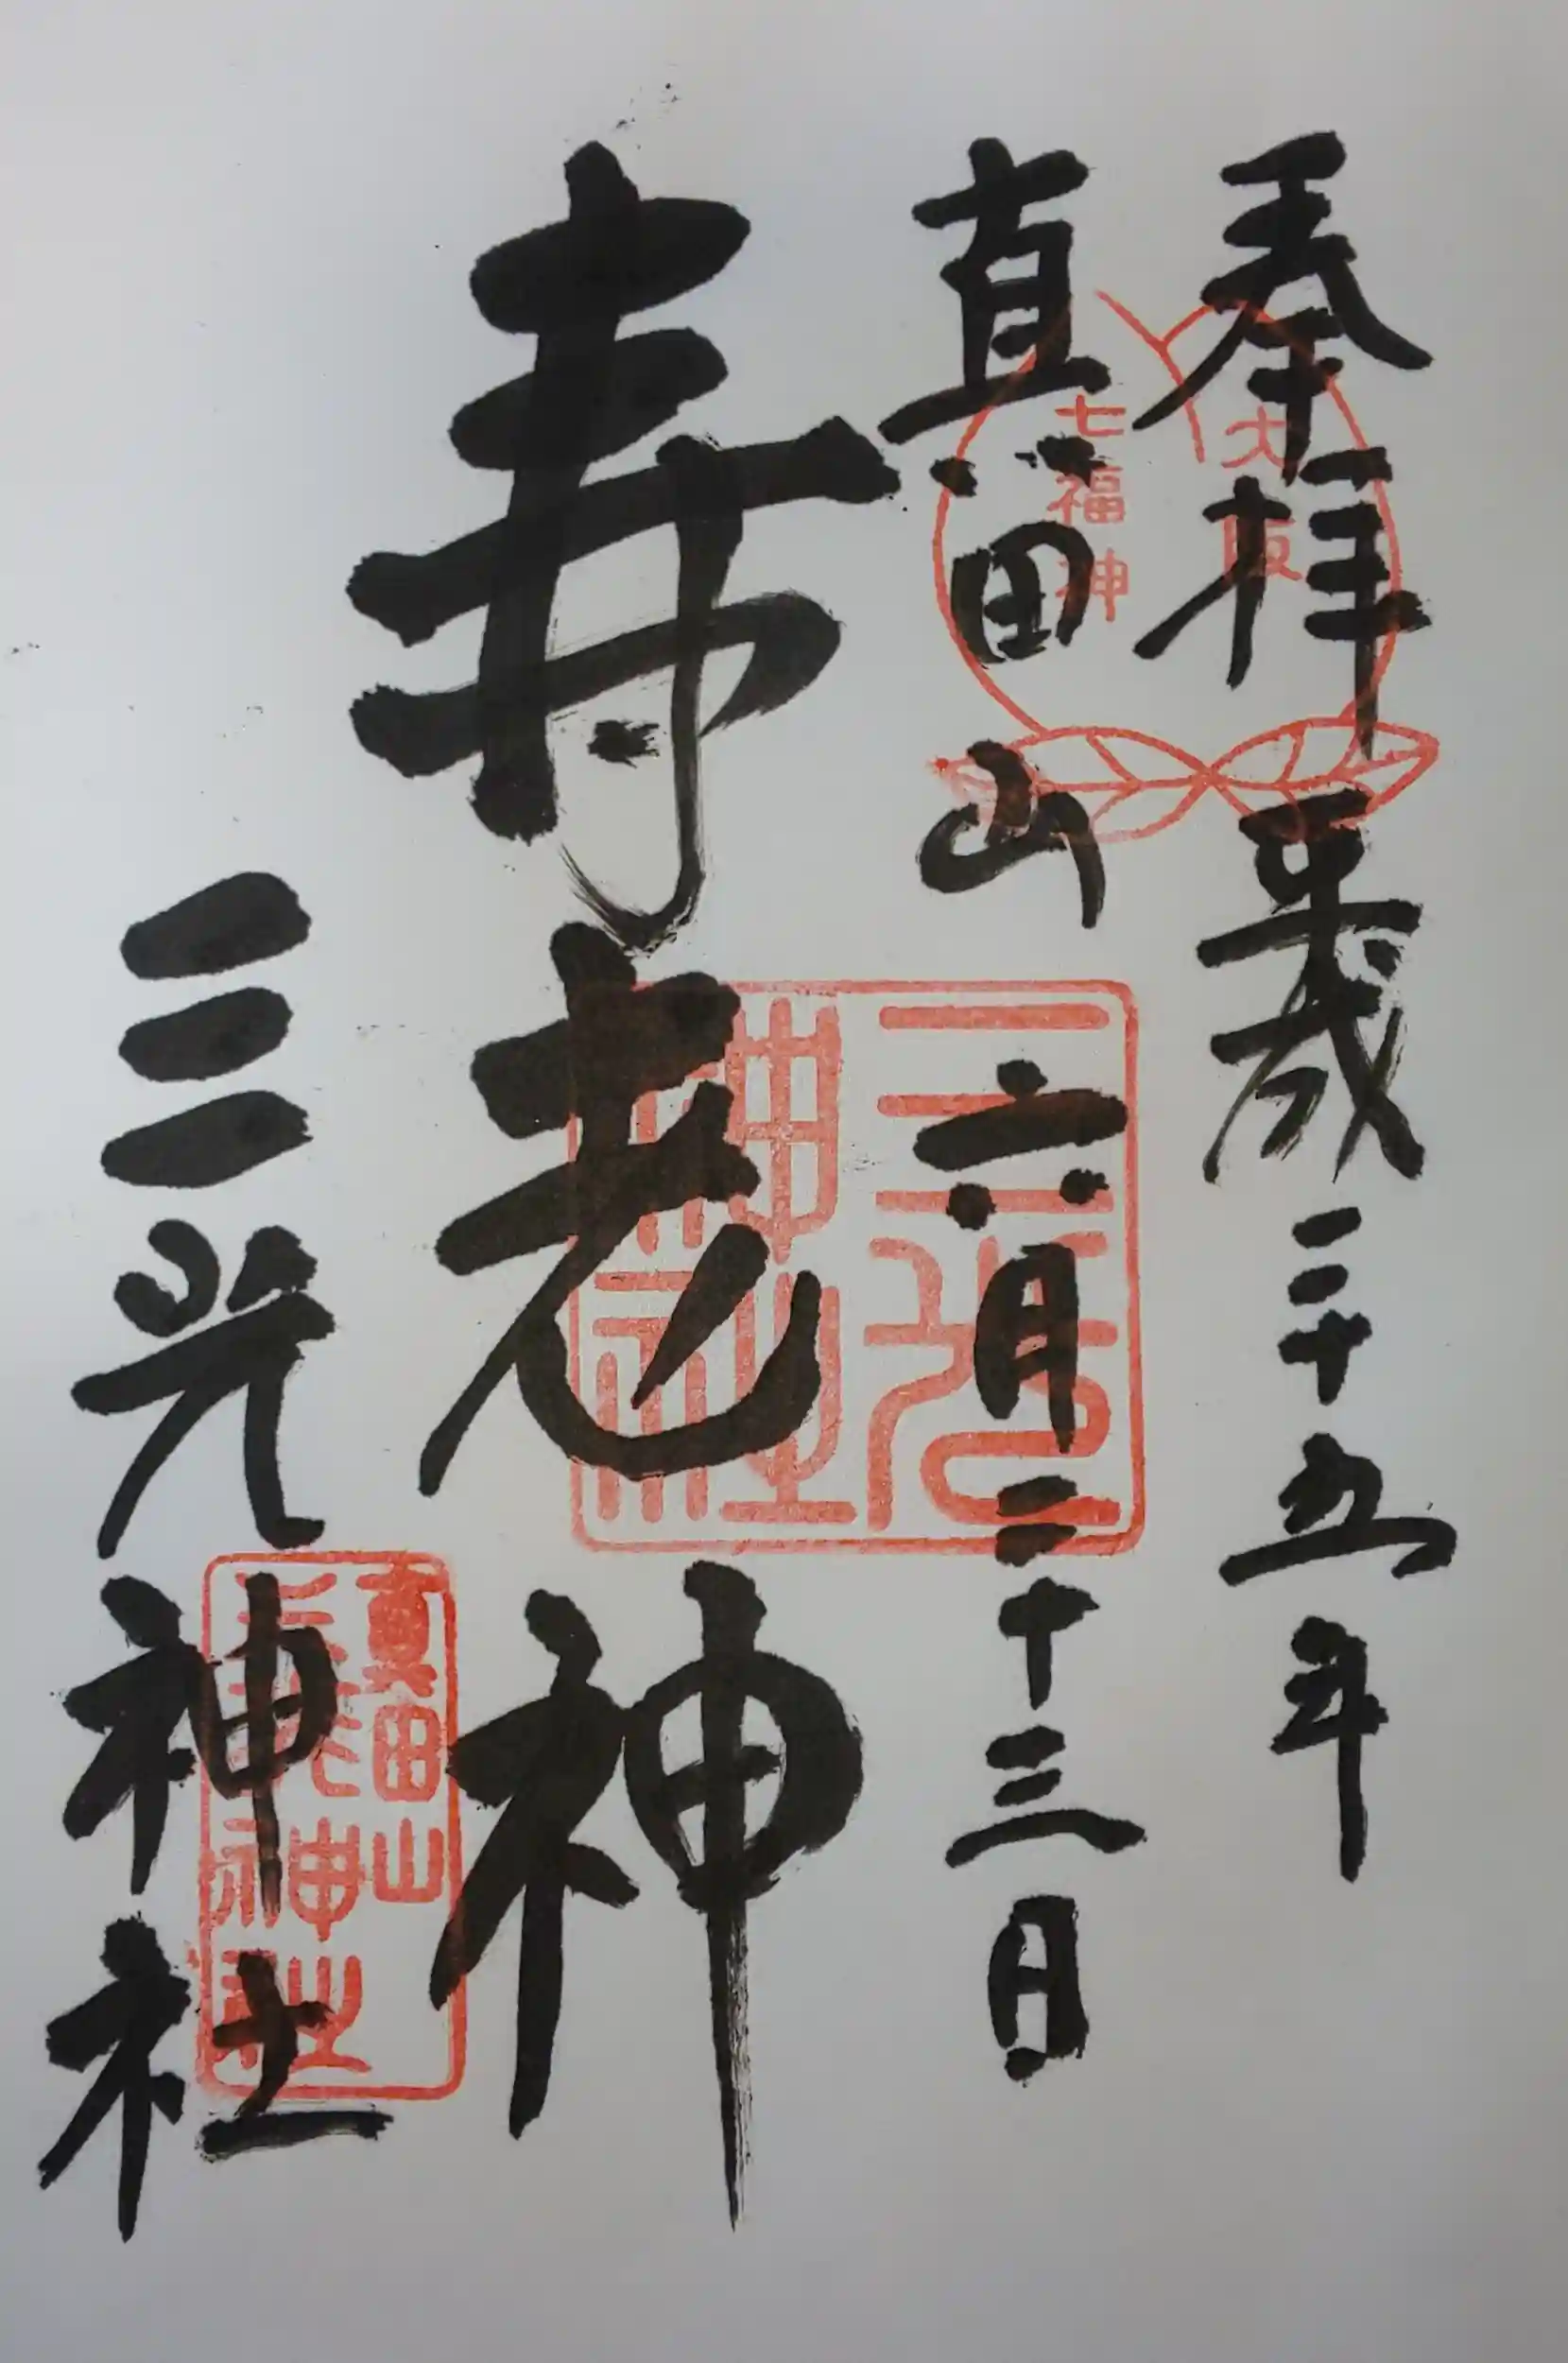 奉拝 平成二十五年
真田山 六月二十三日
寿老神
三光神社
大阪
七福神
三光
神社
真田山
三光神社